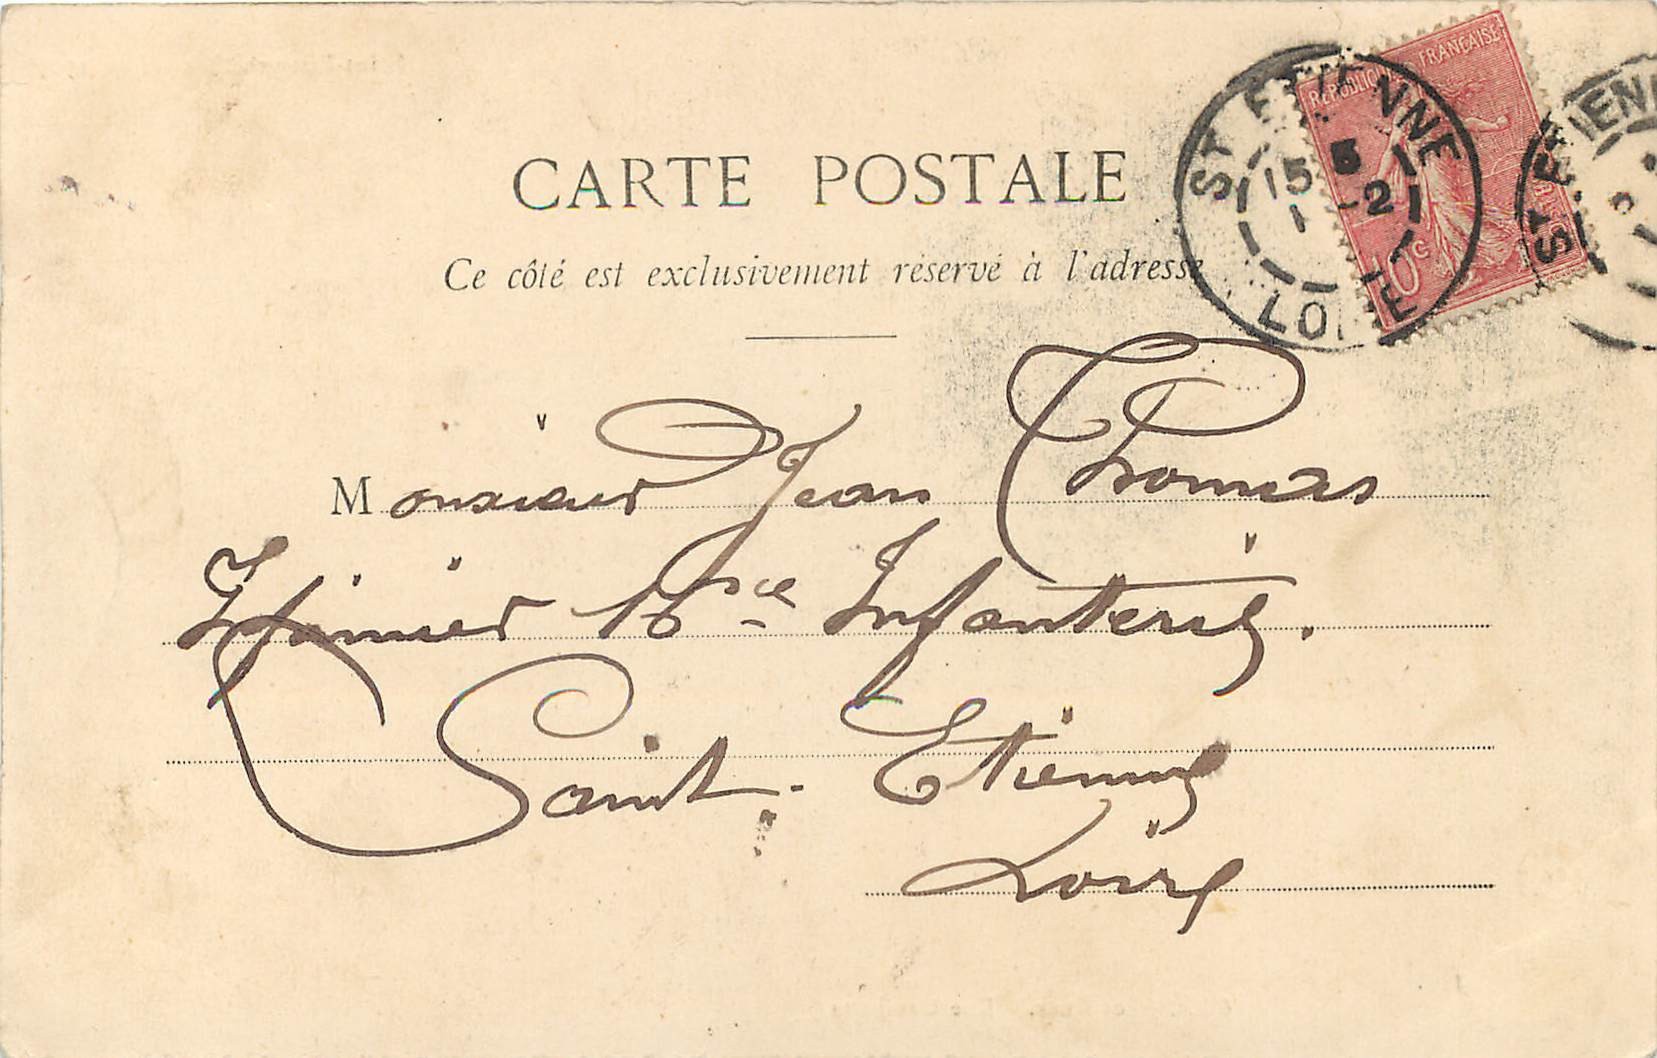 RÉPUBLIQUE FRANÇAISE
ST ETIENNE
15 5 1
1 -2
LOIRE
10c
ST ETIENNE
CARTE POSTALE
Ce côté est exclusivement réservé à l'adresse
Monsieur Jean Thomas
16me Infanterie.
Saint-Etienne
Loire